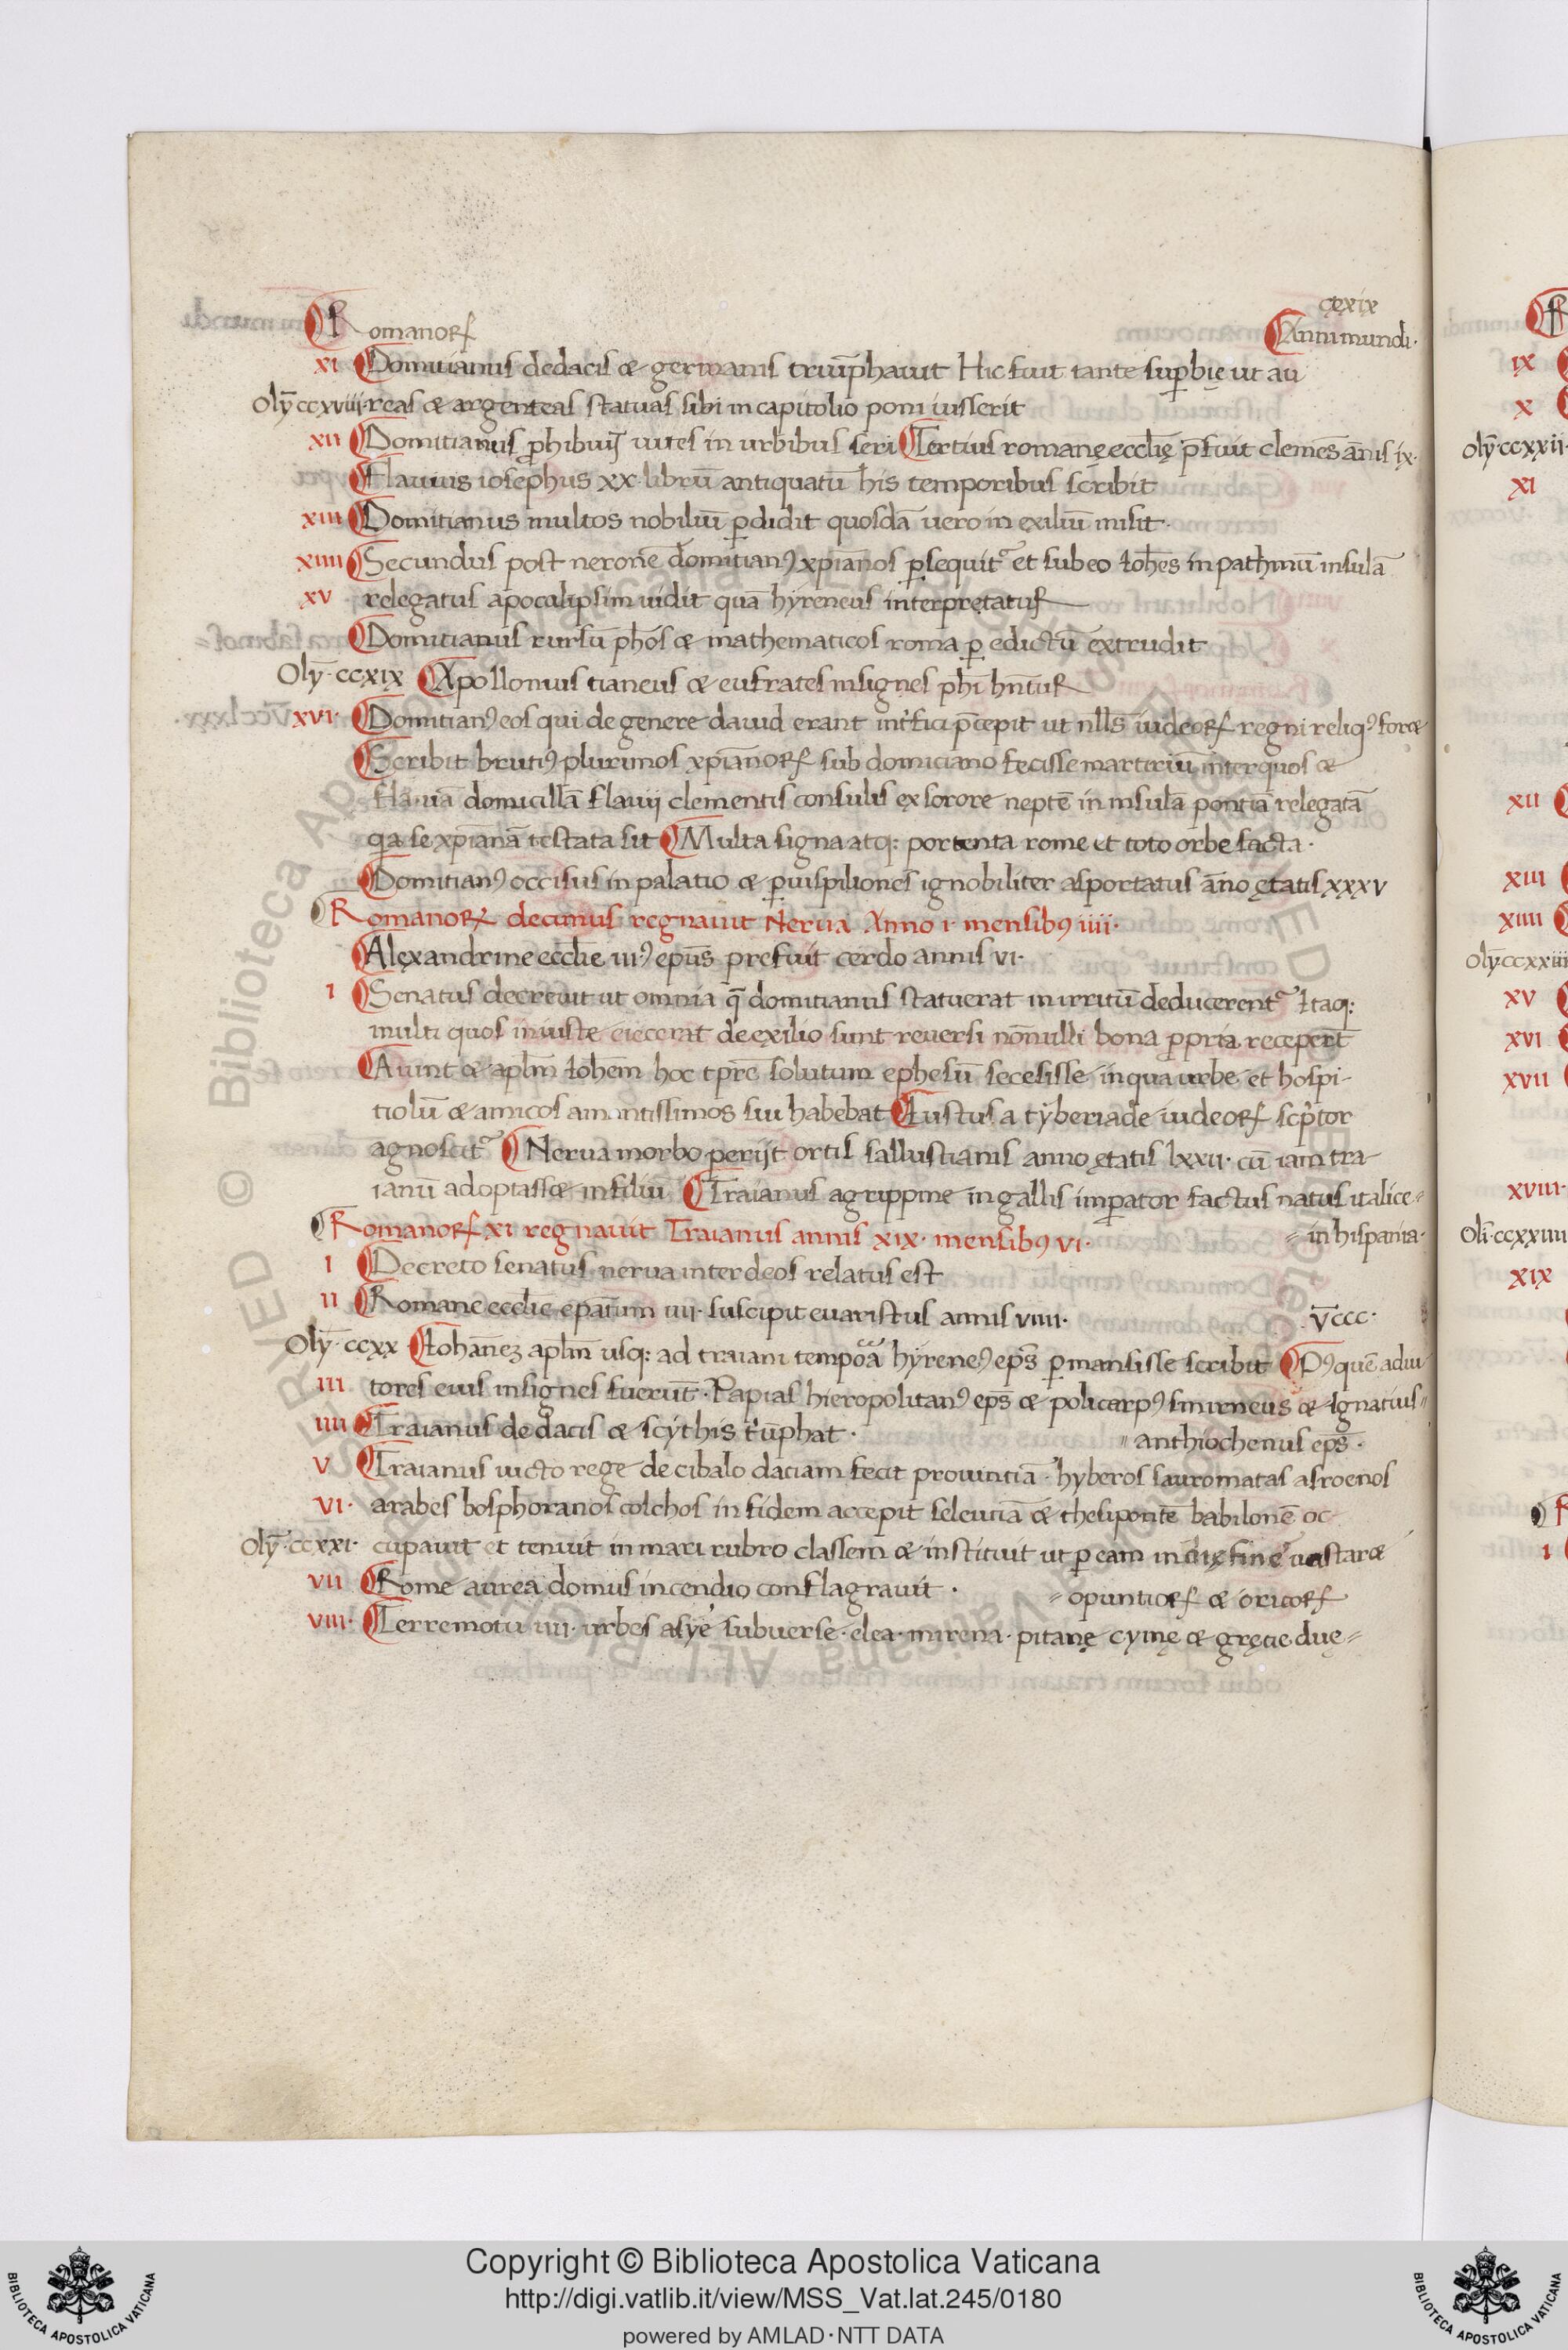 cexix
Romanorꝝ Anni mundi·
xi Domitianus de dacis & germanis triūphauit Hic fuit tante suꝑbię ut au
Olȳ ccxviii· reas & argenteas statuas sibi in capitolio poni iusserit
xii Domitianus ꝓhibuit uites in urbibus seri Tertius romanę ecclię p̄fuit clemēs ānis ix·
Flauius iosephus xx· librū antiquatū his temporibus scribit
xiii Domitianus multos nobiliū ꝑdidit quosdā uero in exiliū misit·
xiiii Secundus post neronē domitianꝰ xpīanos ꝑsequit᷑ et sub eo Ioh̄es in pathmū insulā
xv relegatus apocalipsim uidit quā hyreneus interpretatur
Domitianus rursū ph̄os & mathematicos roma ꝑ edictū extrudit
Olȳ· ccxix Apollonius tianeus & eufrates insignes ph̄i hn̄tur
xvi· Domitianꝰ eos qui de genere dauid erant int̓fici p̄cepit ut nll̄s iudeorꝝ regni reliqꝰ for&
Scribit brutiꝰ plurimos xpīanorꝝ sub domiciano fecisse martiriū inter quos &
flauiā domicillā flauij clementis consulis ex sorore neptē in insulā pontiā relegatā
qa se xpianā testata sit Multa signa atq: portenta rome et toto orbe facta·
Domitianꝰ occisus in palatio & ꝑ uispiliones ignobiliter asportatus āno ętatis xxxv
Romanorꝝ decimus regnauit Nerua Anno i· mensibꝰ iiii·
Alexandrine ecclie iiiꝰ ep̄us prefuit cerdo annis vi·
i Senatus decreuit ut omnia q̄ domitianus statuerat in irritū deducerent᷑ Itaq:
multi quos iniuste eiecerat de exilio sunt reuersi nōnulli bona ꝓpria recepert̄
Aiunt & aplm̄ Ioh̄em hoc tpr̄e solutum ephesū secesisse in qua urbe et hospi-
tiolū & amicos amantissimos sui habebat Iustus a tyberiade iudeorꝝ scp̓tor
agnoscit᷑ Nerua morbo perijt ortis sallustianis anno ętatis lxxii· cū iam tra-
ianū adoptass& in filiū Traianus agrippine in gallis imꝑator factus natus italice=
Romanorꝝ xi regnauit Traianus annis xix· mensibꝰ vi· =in hispania·
i Decreto senatus nerua inter deos relatus est
ii Romane ecclie epatum iiii· suscipit euaristus annis viiii· v̄ccc·
Olȳ· ccxx Iohānez aplm̄ usq: ad traiani tempoa hyreneꝰ ep̄s ꝑmansisse scribit Pꝰ quē adiu
iii tores eius insignes fuerūt· Papias hieropolitanꝰ ep̄s & policarpꝰ smirneus & Ignatius=
iiii Traianus de dacis & scythis t̓ūphat· =anthiochenus ep̄s·
v Traianus uicto rege decibalo daciam fecit prouintiā· hyberos sauromatas asroenos
vi· arabes bosphoranos colchos in fidem accepit seleuciā & thesipontē babilonē oc
Olȳ· ccxxi· cupauit et tenuit in mari rubro classem & instituit ut ꝑ eam indię finē uastar&
vii Rome aurea domus incendio conflagrauit· =opuntiorꝝ & oricorꝝ
viii· Terremotu iiii· urbes asye subuerse· elea· mirena· pitane cymę & gręcie due=
ix
x
Olȳ·ccxxii·
xi
xii
xiii
xiiii
Olȳ ccxxiii
xv
xvi
xvii
xviii·
Olī·ccxxiiii
xix
i
Biblioteca Apostolica Vaticana ALL RIGHTS RESERVED ©
Copyright © Biblioteca Apostolica Vaticana
http://digi.vatlib.it/view/MSS_Vat.lat.245/0180
powered by AMLAD·NTT DATA
BIBLIOTECA APOSTOLICA VATICANA
BIBLIOTECA APOSTOLICA VATICANA